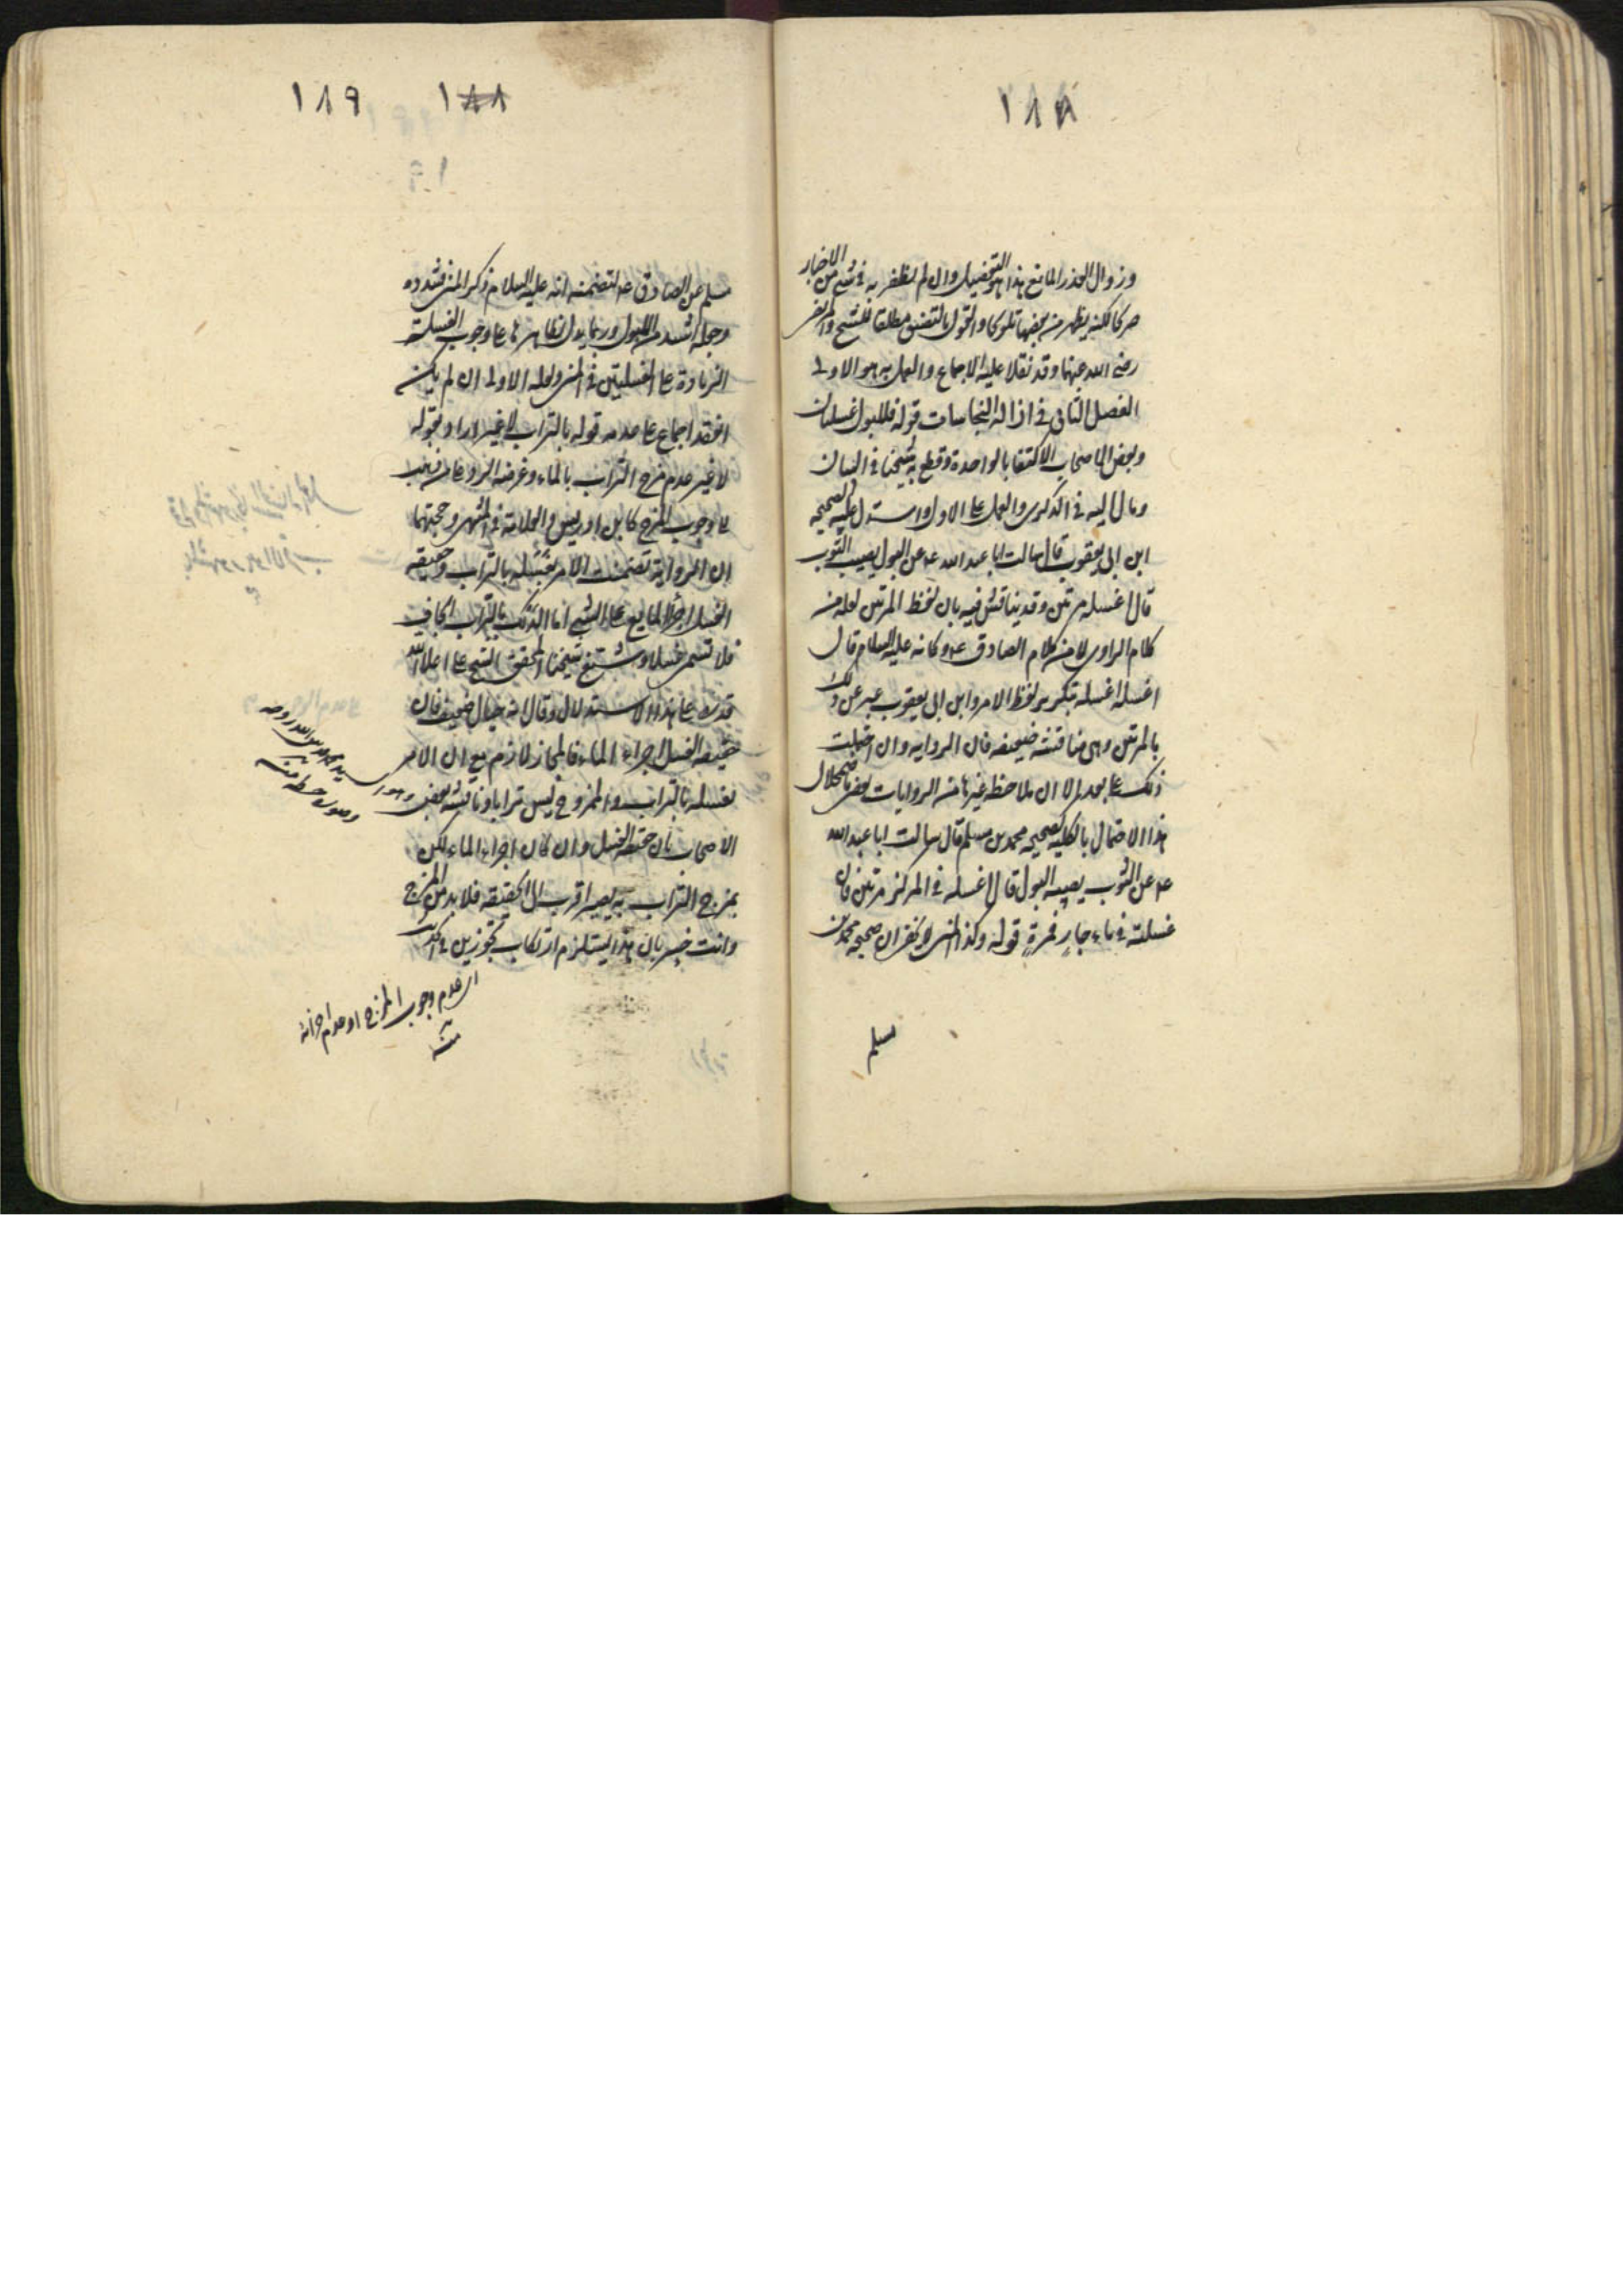 ١٨٨
وزوال العذر المانع هذا هو التفصيل وان لم نظفر به في شيء من الاخبار
صريحا لكنه يظهر من بعضها تلويحا والقول بالتضيق مطلقا للشيخ والمرتضى
رضي الله عنهما وقد نقلا عليه الاجماع والعمل به هو الاولى
الفصل الثاني في ازالة النجاسات قوله فللبول غسلتان
وبعض الاصحاب الاكتفا بالواحدة وقطع به شيخنا في البيان
ومال اليه في الذكرى والعمل على الاول واستدل عليه بصحيحه
ابن ابي يعقوب قال سالت ابا عبد الله عه عن البول يصيب الثوب
قال اغسله مرتين وقد يناقش فيه بان لفظ المرتين لعله من
كلام الراوي لا من كلام الصادق عه وكانه عليه السلام قال
اغسله اغسله بتكرير لفظ الامر وابن ابي يعقوب عبر عن ذلك
بالمرتين وهي مناقشة ضعيفه فان الروايه وان احتملت
ذلك على بعد الا ان ملاحظة غيرها من الروايات يعض باضمحلال
هذا الاحتمال بالكليه كصحيحه محمد بن مسلم قال سالت ابا عبد الله
عه عن الثوب يصيبه البول قال اغسله في المركن مرتين فان
غسلته في ماء جار فمرة قوله وكذا المني لو نظر الى صحيحه محمد بن
مسلم
١٨٨ ١٨٩
مسلم عن الصادق عه لتضمنه انه عليه السلام ذكر المني فشدده
وجعله اشد من البول وربما يدل بظاهرها على وجوب الغسلة
الزيادة على الغسلتين في المني ولعله الاولى ان لم يكن
انعقد اجماع على عدمه قوله بالتراب لا غير اراد بقوله
لا غير عدم مزج التراب بالماء وغرضه الرد على من ذهب
الى وجوب المزج كابن ادريس والعلامة في المنتهى وحجتهما
ان الرواية تضمنت الامر بغسله بالتراب وحقيقه
الغسل اجراء المايع على الشيء اما الدلك بالتراب الجاف
فلا تسمى غسلا وشنع شيخنا المحقق الشيخ علي اعلا الله
قدره على هذا الاستدلال وقال انه خيال ضعيف فان
حقيقه الغسل اجراء الماء فالمجاز لازم مع ان الامر
بغسله بالتراب والممزوج ليس ترابا وناقشه بعض
الاصحاب بان حقيقة الغسل وان كان اجراء الماء لكن
بمزج التراب به يصير اقرب الى الحقيقه فلا بد من المزج
وانت خبير بان هذا يستلزم ارتكاب تجوزين في الحديث
وهو السيد محمد قدس الله روحه
اي عدم وجوب المزج او عدم اجزائه
منه